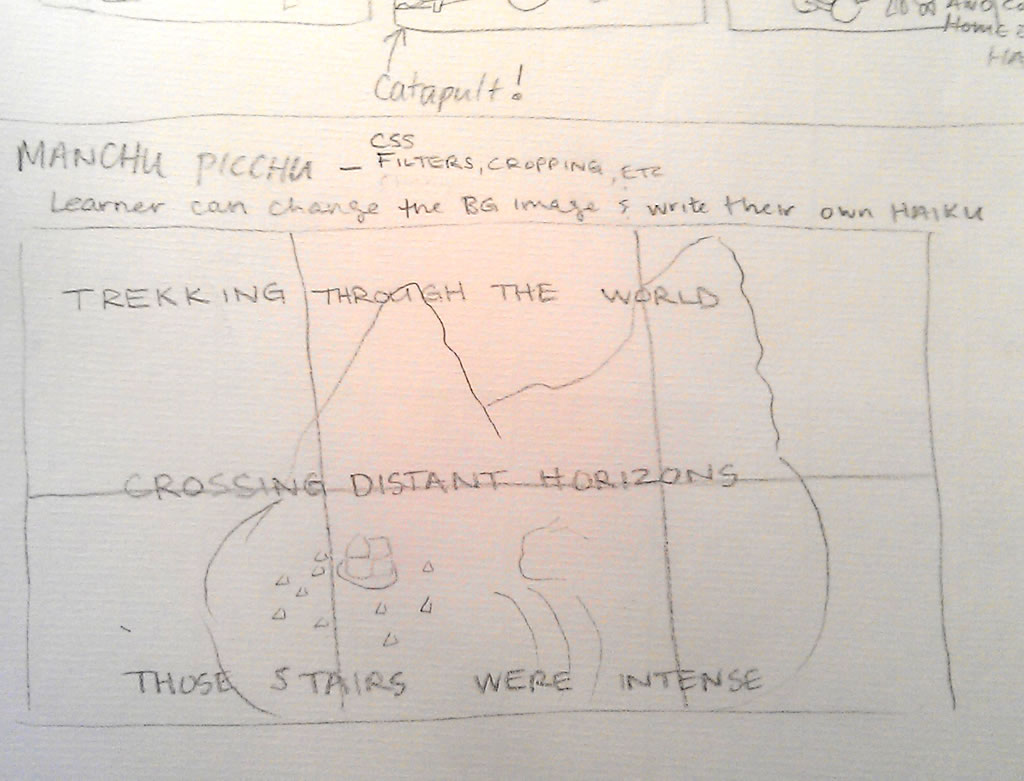 AND
Home
Catapult!
MANCHU PICCHU – CSS
FILTERS, CROPPING, ETC
Learner can change the BG image & write their own HAIKU
TREKKING THROUGH THE WORLD
CROSSING DISTANT HORIZONS
THOSE STAIRS WERE INTENSE